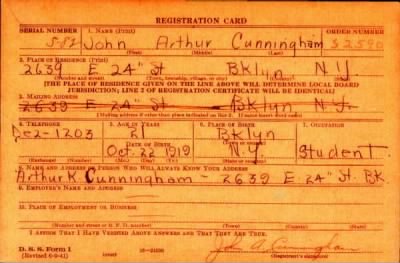 REGISTRATION CARD
SERIAL NUMBER 1. NAME (Print) ORDER NUMBER
John Arthur Cunningham
(First) (Middle) (Last)
2. PLACE OF RESIDENCE (Print)
2639 E 24" St. Bklyn N.Y.
(Number and street) (Town, township, village, or city) (County) (State)
[THE PLACE OF RESIDENCE GIVEN ON THE LINE ABOVE WILL DETERMINE LOCAL BOARD
JURISDICTION; LINE 2 OF REGISTRATION CERTIFICATE WILL BE IDENTICAL]
3. MAILING ADDRESS
2639 E 24" St Bklyn N.Y.
[Mailing address if other than place indicated on line 2. If same insert word same]
4. TELEPHONE 5. AGE IN YEARS 6. PLACE OF BIRTH 7. OCCUPATION
De2-1203 21 Bklyn
DATE OF BIRTH
Oct. 22 1919 N.Y. Student
(Exchange) (Number) (Mo.) (Day) (Yr.) (State or country)
8. NAME AND ADDRESS OF PERSON WHO WILL ALWAYS KNOW YOUR ADDRESS
Arthur K Cunningham - 2639 E 24" St. BK
9. EMPLOYER'S NAME AND ADDRESS
10. PLACE OF EMPLOYMENT OR BUSINESS
(Number and street or R. F. D. number) (Town) (County) (State)
I AFFIRM THAT I HAVE VERIFIED ABOVE ANSWERS AND THAT THEY ARE TRUE.
D. S. S. Form 1
(Revised 6-9-41) (over)
John A. Cunningham